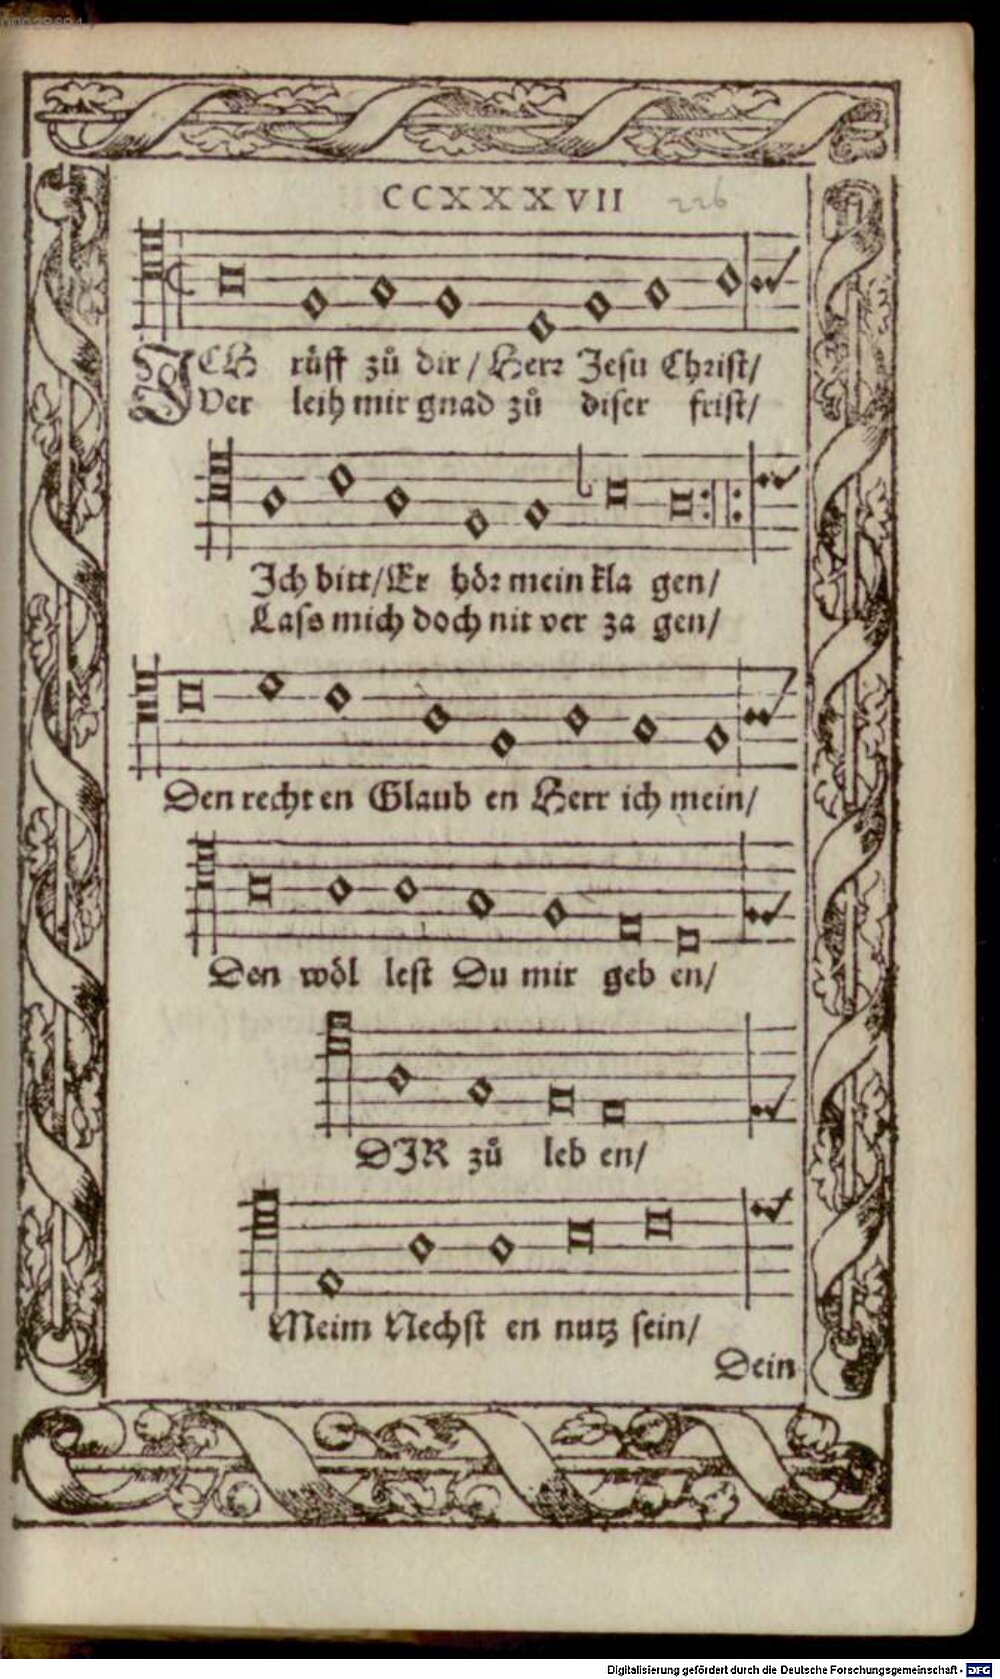 CCXXXVII 226
ICH rüff zů dir / Herr Jesu Christ/
Ver leih mir gnad zů diser frist/
Ich bitt/Er hör mein kla gen/
Lass mich doch nit ver za gen/
Den recht en Glaub en Herr ich mein/
Den wöl lest Du mir geb en/
DIR zů leb en/
Meim Nechst en nutz sein/
Dein
Digitalisierung gefördert durch die Deutsche Forschungsgemeinschaft - DFG